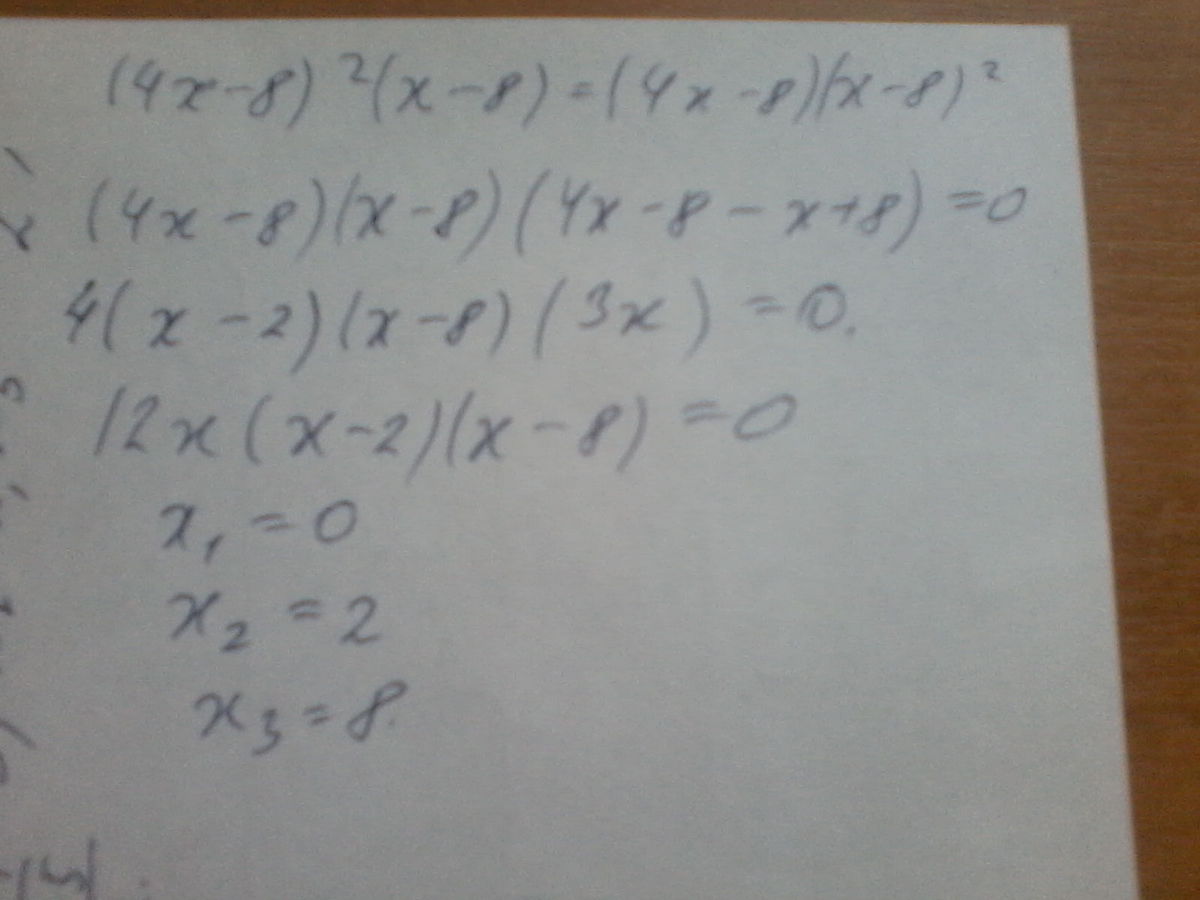 (4x-8)²(x-8)=(4x-8)(x-8)²
(4x-8)(x-8)(4x-8-x+8)=0
4(x-2)(x-8)(3x)=0.
12x(x-2)(x-8)=0
x₁=0
x₂=2
x₃=8.